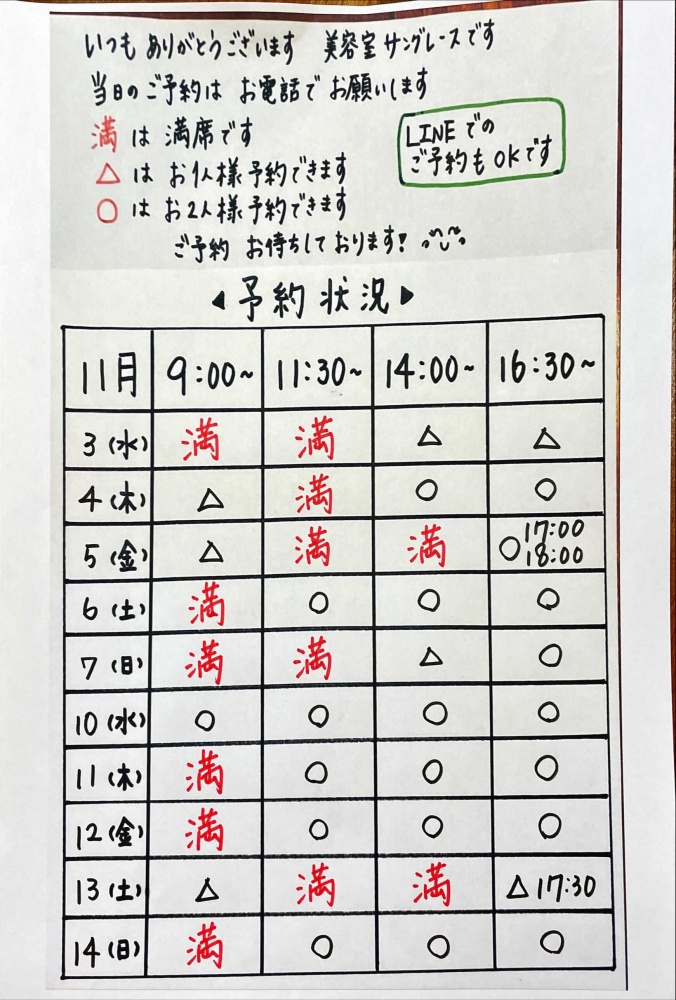 いつも ありがとうございます 美容室サングレースです
当日のご予約は お電話で お願いします
満 は 満席です
△ は お1人様予約できます
○ は お2人様予約できます
LINEでの
ご予約もOKです
ご予約 お待ちしております!
◀予約状況▶
11月 9:00~ 11:30~ 14:00~ 16:30~
3(水) 満 満 △ △
4(木) △ 満 ○ ○
5(金) △ 満 満 ○17:00 18:00
6(土) 満 ○ ○ ○
7(日) 満 満 △ ○
10(水) ○ ○ ○ ○
11(木) 満 ○ ○ ○
12(金) 満 ○ ○ ○
13(土) △ 満 満 △17:30
14(日) 満 ○ ○ ○